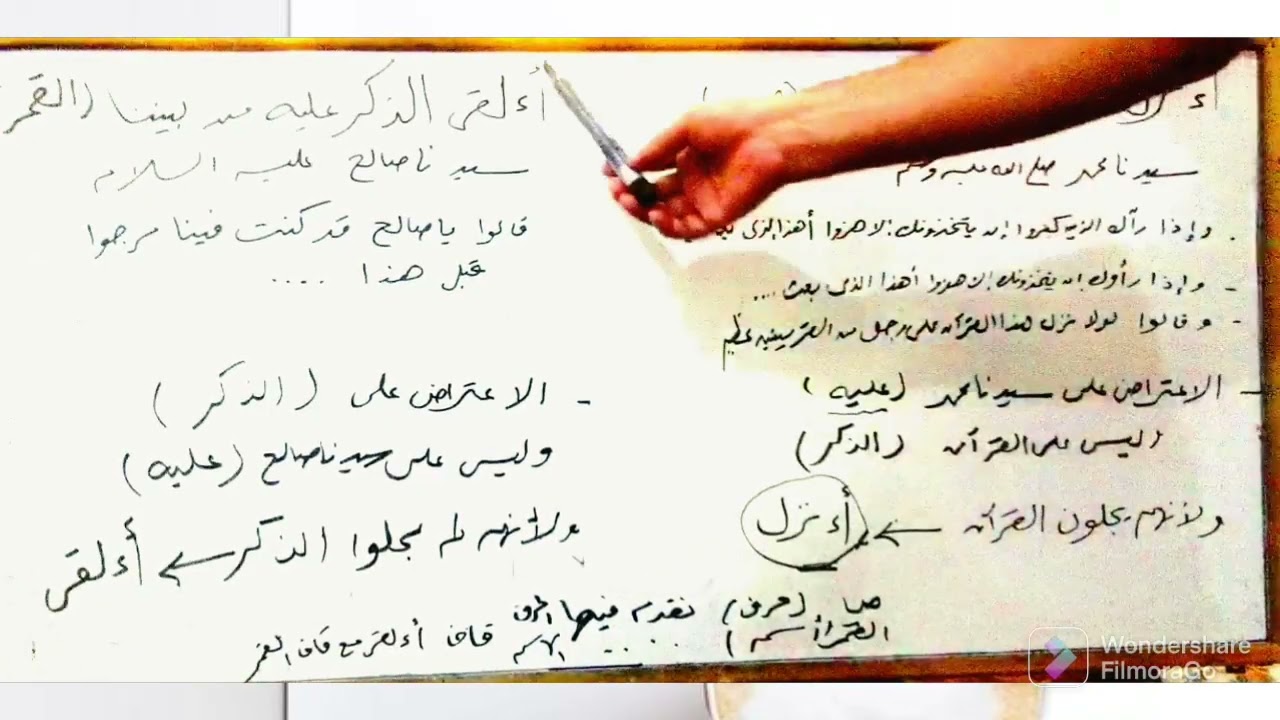 أءلقى الذكر عليه من بيننا (القمر
سيدنا صالح عليه السلام
قالوا يا صالح قد كنت فينا مرجوا
قبل هذا ....
- الاعتراض على (الذكر)
وليس على سيدنا صالح (عليه)
ولأنهم لم يجلوا الذكر ← أءلقى
سيدنا محمد صلى الله عليه وسلم
. وإذا رآك الذين كفروا إن يتخذونك إلا هزوا أهذا الذى
- وإذا رأوك إن يتخذونك إلا هزوا أهذا الذى بعث ....
- وقالوا لولا نزل هذا القرآن على رجل من القريتين عظيم
- الاعتراض على سيدنا محمد (عليه)
(ليس على القرآن (الذكر)
ولأنهم يجلون القرآن ← أءنزل
ص (حرف) تقدم فيها الحرف
القمر (اسم) .... الاسم قاف أءلقى مع قاف القمر
Wondershare
FilmoraGo